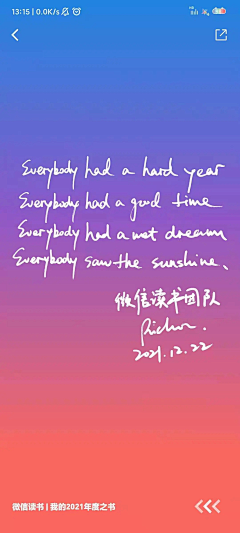 13:15 | 0.0K/s
Everybody had a hard year
Everybody had a good time
Everybody had a wet dream
Everybody saw the sunshine.
微信读书团队
2021.12.22
微信读书 | 我的2021年度之书